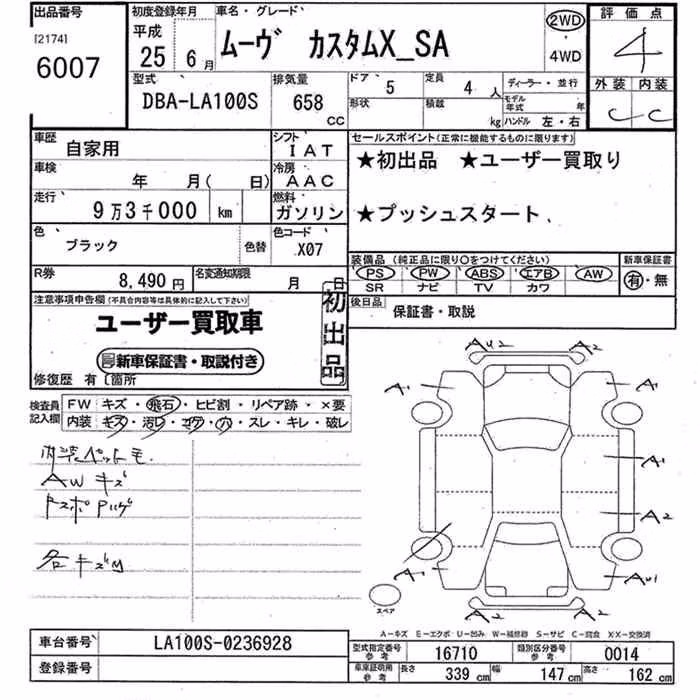 出品番号
[2174]
6007
初度登録年月
平成
25 6月
車名・グレード
ムーヴ カスタムX_SA
2WD
・
4WD
評価点
4
外装 内装
C C
型式
DBA-LA100S
排気量
658
CC
ドア
5
定員
4 人
形状
積載
kg
ディーラー・並行
モデル年式 年
ハンドル 左・右
車歴
自家用
シフト
IAT
車検
年 月( 日)
冷房
AAC
走行
9万3千000 km
燃料
ガソリン
色
ブラック
色替
色コード
X07
R券
8,490円
名変通知期限
月 日
セールスポイント(正常に機能するものに限ります)
★初出品 ★ユーザー買取り
★プッシュスタート、
装備品(純正品に限り○をつけてください)
PS PW ABS エアB AW
SR ナビ TV カワ
新車保証書
有・無
後日品
保証書・取説
注意事項申告欄(不具合内容等は具体的に記入して下さい)
ユーザー買取車
新車保証書・取説付き
初出品
修復歴 有〔箇所
検査員記入欄
FW キズ・飛石・ヒビ割・リペア跡・×要
内装 キズ・汚レ・コゲ・穴・スレ・キレ・破レ
AWキズ
各キズ
AU2 A2
A1 A1
A1
A2
A1 AU1
A2 A2
スペア
A-キズ E-エクボ U-凹み W-補修跡 S-サビ C-腐食 XX-交換済
車台番号
LA100S-0236928
登録番号
型式指定番号
参考
16710
類別区分番号
参考
0014
車庫証明用
参考
長さ 339 cm 幅 147 cm 高さ 162 cm